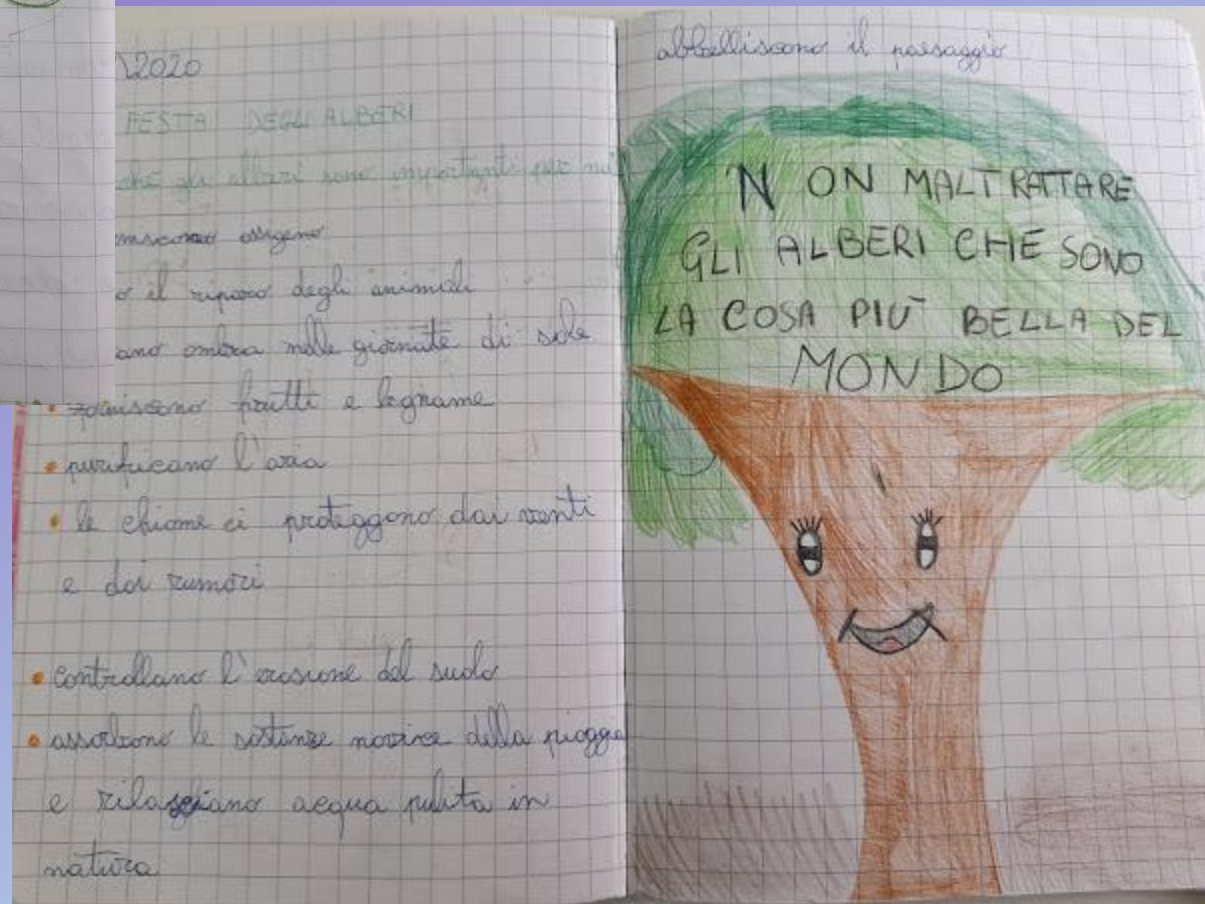 \2020
FESTA DEGLI ALBERI
ché gli alberi sono importanti per
ossigeno
o il riparo degli animali
ano ombra nelle giornate di sole
• forniscono frutti e legname
• purificano l'aria
• le chiome ci proteggono dai venti
e dai rumori
• controllano l'erosione del suolo
• assorbono le sostanze nocive della pioggia
e rilasciano acqua pulita in
natura
abbelliscono il paesaggio
NON MALTRATTARE
GLI ALBERI CHE SONO
LA COSA PIÙ BELLA DEL
MONDO